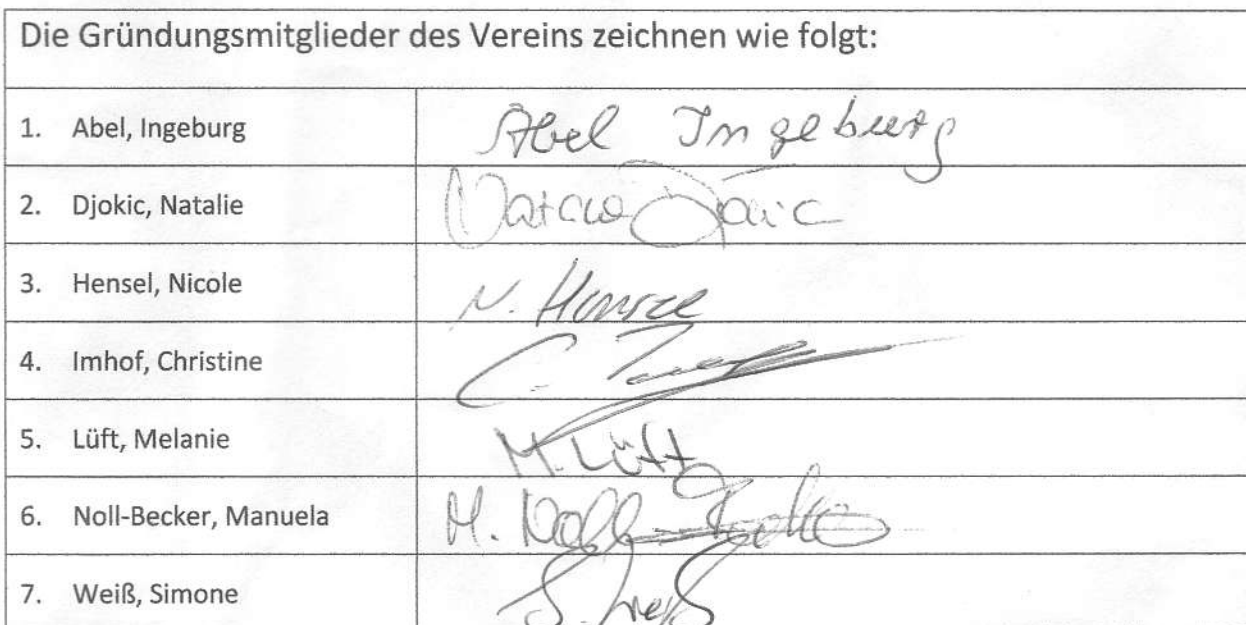 Die Gründungsmitglieder des Vereins zeichnen wie folgt:
1. Abel, Ingeburg Abel Ingeburg
2. Djokic, Natalie
3. Hensel, Nicole N. Hensel
4. Imhof, Christine C.
5. Lüft, Melanie M. Lüft
6. Noll-Becker, Manuela M. Noll-Becker
7. Weiß, Simone S. Weiß